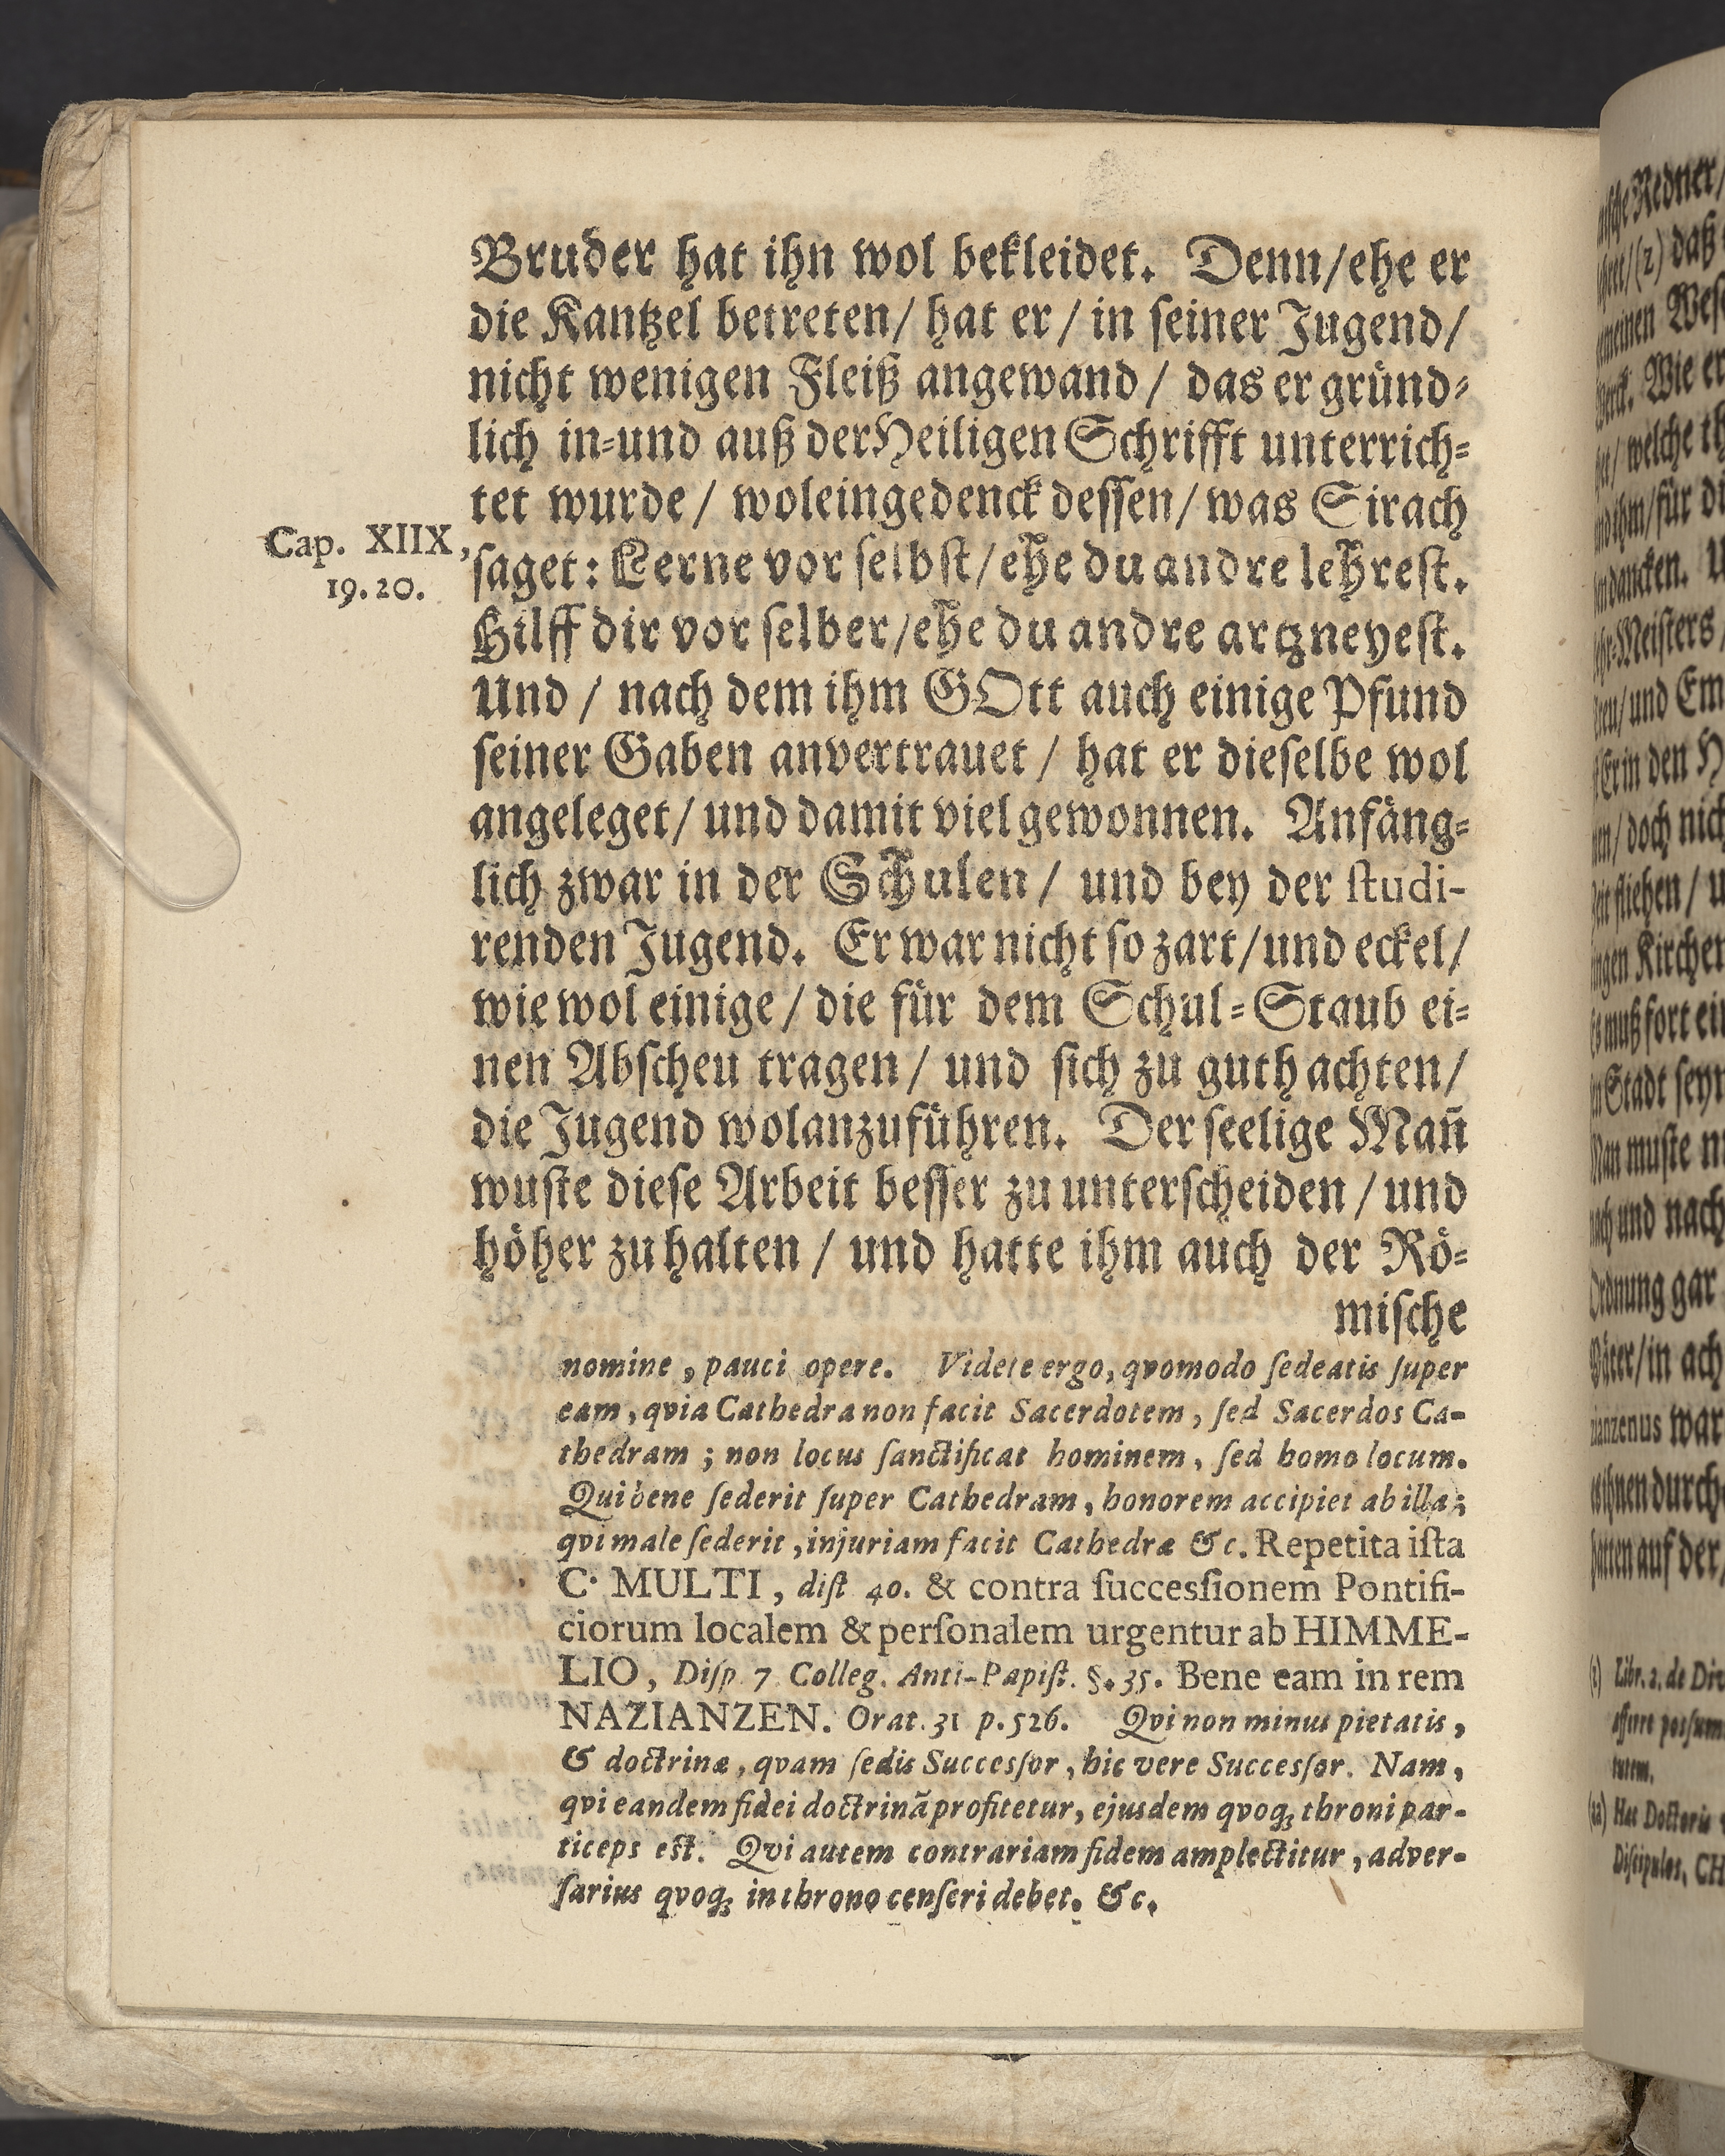 Bruder hat ihn wol bekleidet. Denn/ehe er
die Kantzel betreten/ hat er/ in ſeiner Jugend/
nicht wenigen Fleiß angewand/ das er gründ-
lich in-und auß der Heiligen Schrifft unterrich-
tet wurde/ woleingedenck deſſen/ was Sirach
Cap. XIIX,
19.20.
ſaget: Lerne vor ſelbſt/ ehe du andre lehreſt.
Hilff dir vor ſelber/ehe du andre artzneyeſt.
Und/ nach dem ihm GOtt auch einige Pfund
ſeiner Gaben anvertrauet/ hat er dieſelbe wol
angeleget/ und damit viel gewonnen. Anfäng-
lich zwar in der Schulen/ und bey der ſtudi-
renden Jugend. Er war nicht ſo zart/und eckel/
wie wol einige/ die für dem Schul-Staub ei-
nen Abſcheu tragen/ und ſich zu guth achten/
die Jugend wolanzuführen. Der ſeelige Mañ
wuſte dieſe Arbeit beſſer zu unterſcheiden/ und
höher zu halten/ und hatte ihm auch der Rö-
miſche
nomine, pauci opere. Videte ergo, qvomodo ſedeatis ſuper
eam, qvia Cathedra non facit Sacerdotem, ſed Sacerdos Ca-
thedram; non locus ſanctificat hominem, ſed homo locum.
Qui bene ſederit ſuper Cathedram, honorem accipiet ab illa;
qvi male ſederit, injuriam facit Cathedræ &c. Repetita iſta
C. MULTI, diſt 40. & contra ſuccesſionem Pontifi-
ciorum localem & perſonalem urgentur ab HIMME-
LIO, Diſp. 7 Colleg. Anti-Papiſt. §. 35. Bene eam in rem
NAZIANZEN. Orat. 31 p. 526. Qvi non minus pietatis,
& doctrinæ, qvam ſedis Succesſor, hic vere Succesſor. Nam,
qvi eandem fidei doctrinã profitetur, ejusdem qvoq; throni par-
ticeps eſt. Qvi autem contrariam fidem amplectitur, adver-
ſarius qvoq; in throno cenſeri debet. &c.
Redner/
(z) daß
meinen Weſ
Wie er
welche
ihm/für
dancken.
Meiſters
und Em
in den
doch nich
fliehen/
Kirchen
muß fort ein
Stadt
muſte
und nach
Ordnung gar
in ach
war
durch
auf der
Libr. 2. de